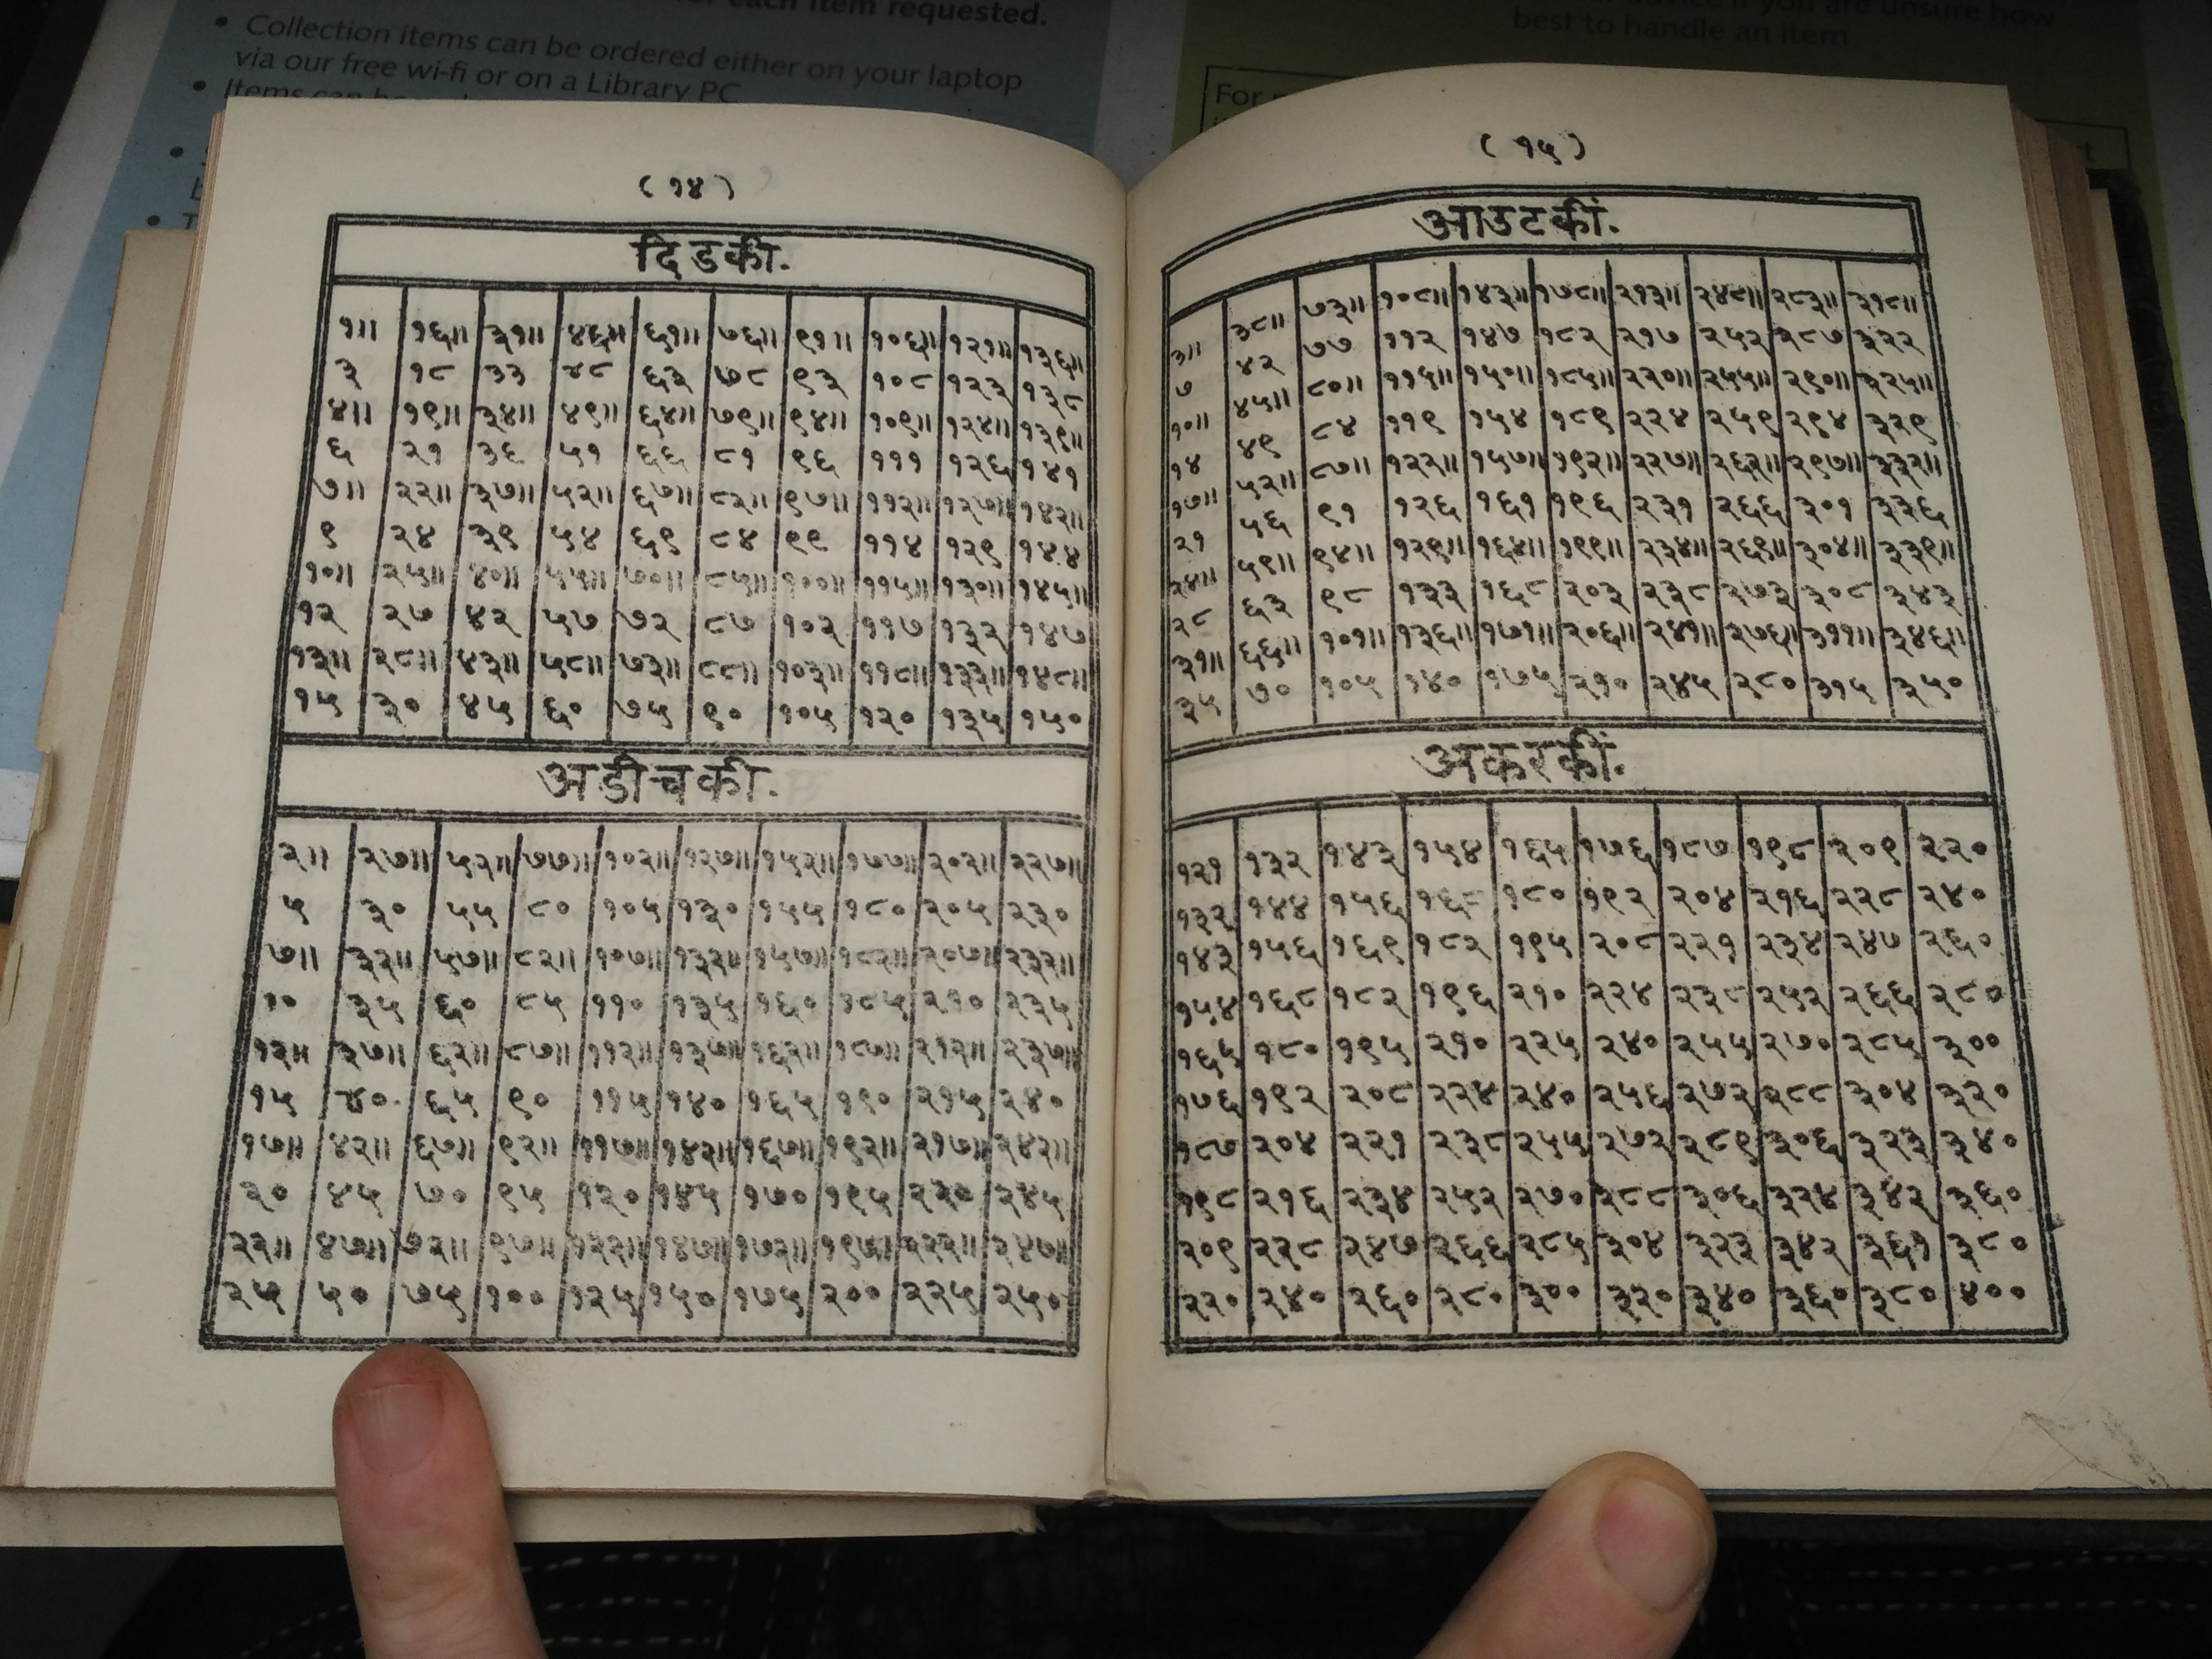 for each item requested.
• Collection items can be ordered either on your laptop
via our free wi-fi or on a Library PC
• Items can be
advice if you are unsure how
best to handle an item
For
( १४ )
दिडकी.
१॥ १६॥ ३१॥ ४६॥ ६१॥ ७६॥ ९१॥ १०६॥ १२१॥ १३६॥
३ १८ ३३ ४८ ६३ ७८ ९३ १०८ १२३ १३८
४॥ १९॥ ३४॥ ४९॥ ६४॥ ७९॥ ९४॥ १०९॥ १२४॥ १३९॥
६ २१ ३६ ५१ ६६ ८१ ९६ १११ १२६ १४१
७॥ २२॥ ३७॥ ५२॥ ६७॥ ८२॥ ९७॥ ११२॥ १२७॥ १४२॥
९ २४ ३९ ५४ ६९ ८४ ९९ ११४ १२९ १४४
१०॥ २५॥ ४०॥ ५५॥ ७०॥ ८५॥ १००॥ ११५॥ १३०॥ १४५॥
१२ २७ ४२ ५७ ७२ ८७ १०२ ११७ १३२ १४७
१३॥ २८॥ ४३॥ ५८॥ ७३॥ ८८॥ १०३॥ ११८॥ १३३॥ १४८॥
१५ ३० ४५ ६० ७५ ९० १०५ १२० १३५ १५०
अडीचकी.
२॥ २७॥ ५२॥ ७७॥ १०२॥ १२७॥ १५२॥ १७७॥ २०२॥ २२७॥
५ ३० ५५ ८० १०५ १३० १५५ १८० २०५ २३०
७॥ ३२॥ ५७॥ ८२॥ १०७॥ १३२॥ १५७॥ १८२॥ २०७॥ २३२॥
१० ३५ ६० ८५ ११० १३५ १६० १८५ २१० २३५
१२॥ ३७॥ ६२॥ ८७॥ ११२॥ १३७॥ १६२॥ १८७॥ २१२॥ २३७॥
१५ ४० ६५ ९० ११५ १४० १६५ १९० २१५ २४०
१७॥ ४२॥ ६७॥ ९२॥ ११७॥ १४२॥ १६७॥ १९२॥ २१७॥ २४२॥
२० ४५ ७० ९५ १२० १४५ १७० १९५ २२० २४५
२२॥ ४७॥ ७२॥ ९७॥ १२२॥ १४७॥ १७२॥ १९७॥ २२२॥ २४७॥
२५ ५० ७५ १०० १२५ १५० १७५ २०० २२५ २५०
( १५ )
आउटकीं.
३॥ ३८॥ ७३॥ १०८॥ १४३॥ १७८॥ २१३॥ २४८॥ २८३॥ ३१८॥
७ ४२ ७७ ११२ १४७ १८२ २१७ २५२ २८७ ३२२
१०॥ ४५॥ ८०॥ ११५॥ १५०॥ १८५॥ २२०॥ २५५॥ २९०॥ ३२५॥
१४ ४९ ८४ ११९ १५४ १८९ २२४ २५९ २९४ ३२९
१७॥ ५२॥ ८७॥ १२२॥ १५७॥ १९२॥ २२७॥ २६२॥ २९७॥ ३३२॥
२१ ५६ ९१ १२६ १६१ १९६ २३१ २६६ ३०१ ३३६
२४॥ ५९॥ ९४॥ १२९॥ १६४॥ १९९॥ २३४॥ २६९॥ ३०४॥ ३३९॥
२८ ६३ ९८ १३३ १६८ २०३ २३८ २७३ ३०८ ३४३
३१॥ ६६॥ १०१॥ १३६॥ १७१॥ २०६॥ २४१॥ २७६॥ ३११॥ ३४६॥
३५ ७० १०५ १४० १७५ २१० २४५ २८० ३१५ ३५०
अकरकीं.
१२१ १३२ १४३ १५४ १६५ १७६ १८७ १९८ २०९ २२०
१३२ १४४ १५६ १६८ १८० १९२ २०४ २१६ २२८ २४०
१४३ १५६ १६९ १८२ १९५ २०८ २२१ २३४ २४७ २६०
१५४ १६८ १८२ १९६ २१० २२४ २३८ २५२ २६६ २८०
१६५ १८० १९५ २१० २२५ २४० २५५ २७० २८५ ३००
१७६ १९२ २०८ २२४ २४० २५६ २७२ २८८ ३०४ ३२०
१८७ २०४ २२१ २३८ २५५ २७२ २८९ ३०६ ३२३ ३४०
१९८ २१६ २३४ २५२ २७० २८८ ३०६ ३२४ ३४२ ३६०
२०९ २२८ २४७ २६६ २८५ ३०४ ३२३ ३४२ ३६१ ३८०
२२० २४० २६० २८० ३०० ३२० ३४० ३६० ३८० ४००